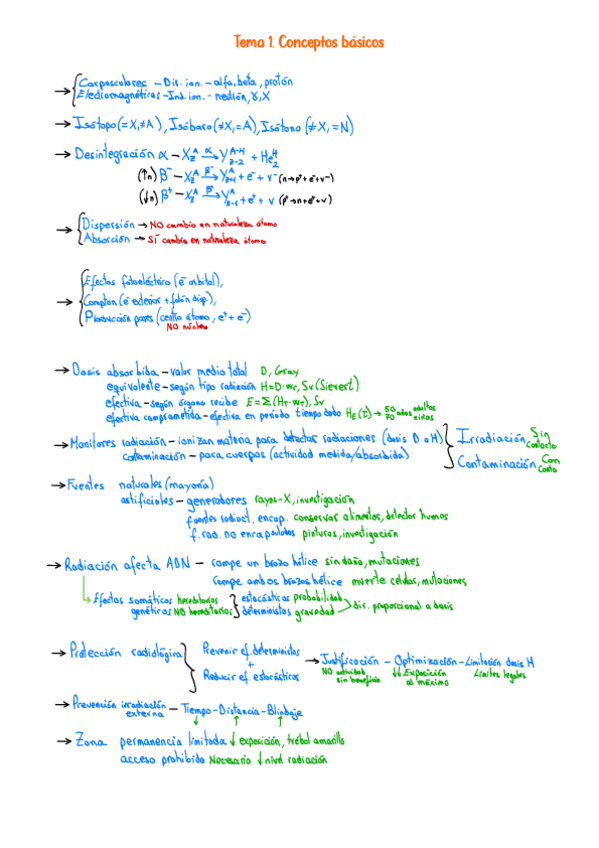 Tema 1. Conceptos básicos
→ { Corpusculares – Dir. ion. – alfa, beta, protón
Electromagnéticas – Ind. ion. – neutrón, γ, X
→ Isótopo (= X, ≠ A), Isóbaro (≠ X, = A), Isótono (≠ X, = N)
→ Desintegración α – X_Z^A →^α Y_{Z-2}^{A-4} + He_2^4
(↑n) β⁻ – X_Z^A →^{β⁻} Y_{Z+1}^A + e⁻ + v⁻ (n → p⁺ + e⁻ + v⁻)
(↓n) β⁺ – X_Z^A →^{β⁺} Y_{Z-1}^A + e⁺ + v (p⁺ → n + e⁺ + v)
→ { Dispersión → NO cambia en naturaleza átomo
Absorción → SÍ cambia en naturaleza átomo
→ { Efectos fotoeléctrico (e⁻ orbital),
Compton (e⁻ exterior + fotón disp.),
Producción pares (centro átomo, e⁺ + e⁻)
NO núcleo
→ Dosis absorbida – valor medio total D, Gray
equivalente – según tipo radiación H = D·w_r, Sv (Sievert)
efectiva – según órgano recibe E = Σ(H_T·w_T), Sv
efectiva comprometida – efectiva en período tiempo dado H_E(τ) → 50 años adultos
70 años niños
→ Monitores radiación – ionizan materia para detectar radiaciones (dosis D o H) } Irradiación Sin contacto
contaminación – para cuerpos (actividad medida/absorbida) Contaminación Con
→ Fuentes naturales (mayoría)
artificiales – generadores rayos-X, investigación
fuentes radioct. encap. conservar alimentos, detector humos
f. rad. no encapsulados pinturas, investigación
→ Radiación afecta ADN – rompe un brazo hélice sin daño, mutaciones
rompe ambos brazos hélice muerte celular, mutaciones
↳ Efectos somáticos hereditarios } estocásticos probabilidad } dir. proporcional a dosis
genéticos NO hereditarios deterministas gravedad
→ Protección radiológica { Prevenir ef. deterministas
+
Reducir ef. estocásticos
→ Justificación – Optimización – Limitación dosis H
NO actividad sin beneficio ↓↓ Exposición al máximo Límites legales
→ Prevención irradiación externa – Tiempo – Distancia – Blindaje
↓ ↑ ↑
→ Zona permanencia limitada ↓ exposición, trébol amarillo
acceso prohibido Necesario ↓ nivel radiación